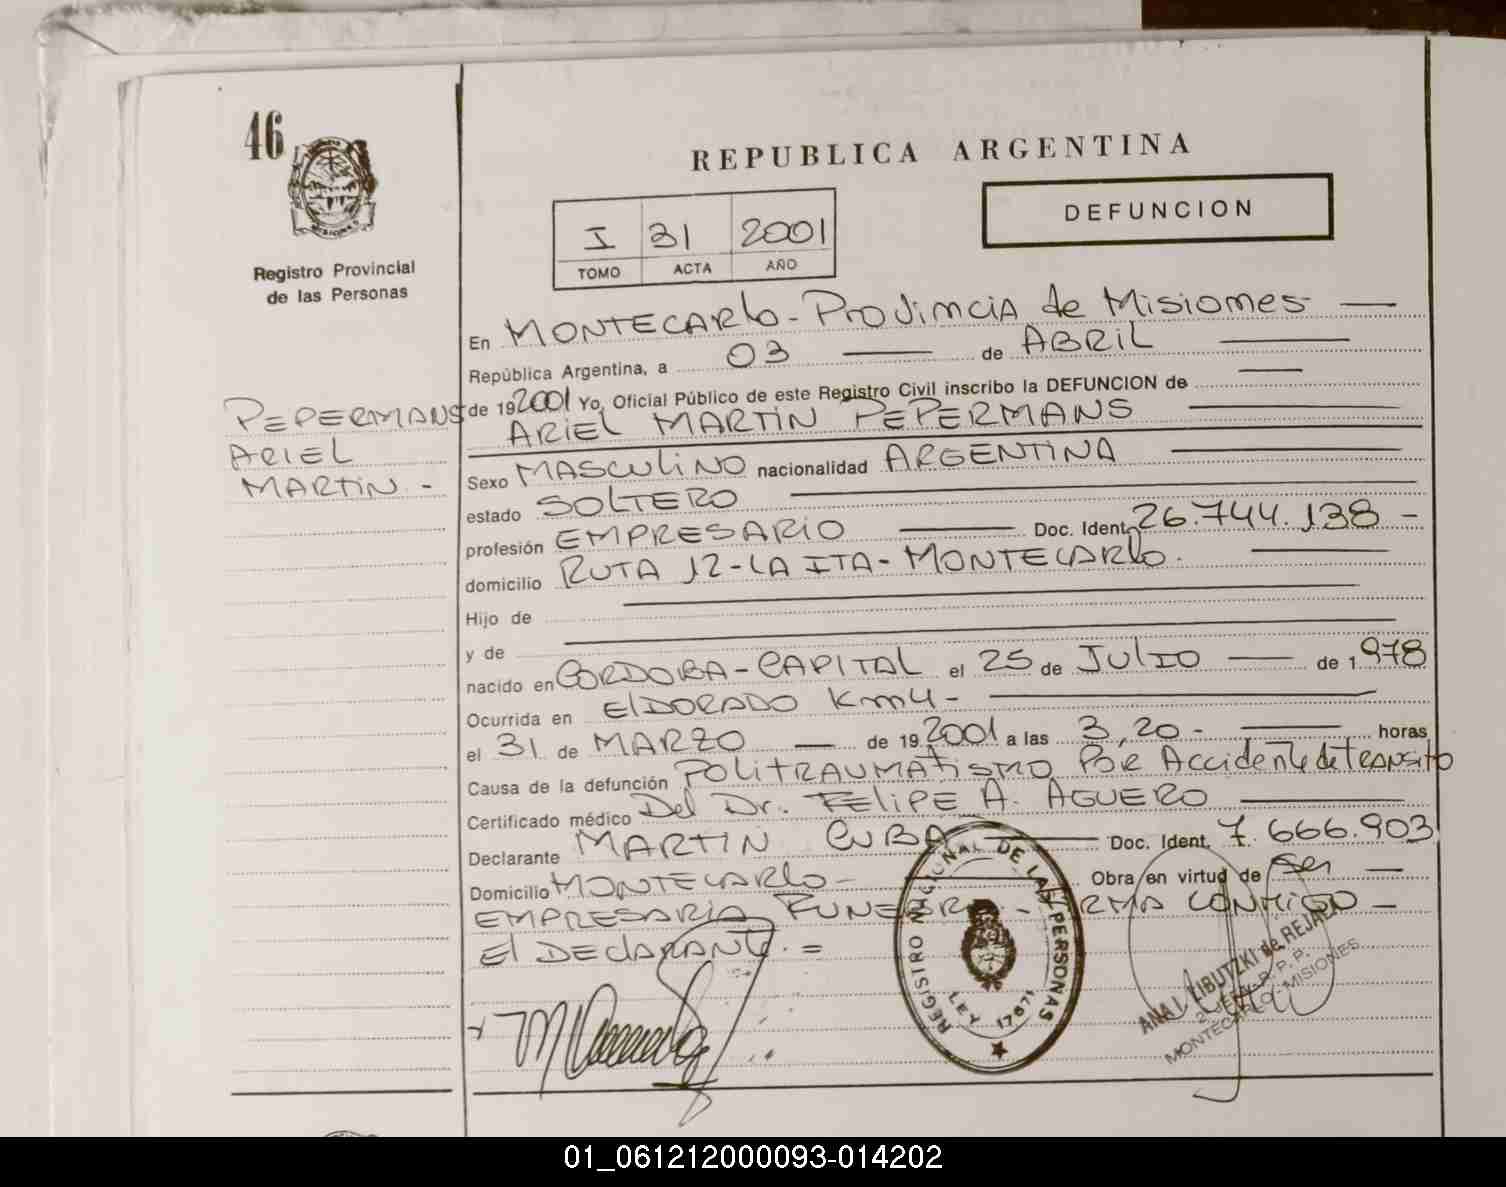 46
MISIONES
Registro Provincial
de las Personas
REPUBLICA ARGENTINA
I 31 2001
TOMO ACTA AÑO
DEFUNCION
PEPERMANS
ARIEL
MARTIN -
En MONTECARlo - Provincia de Misiones
República Argentina, a 03 de ABRIL
de 192001 Yo, Oficial Público de este Registro Civil inscribo la DEFUNCION de
ARIEL MARTIN PEPERMANS
Sexo MASCULINO nacionalidad ARGENTINA
estado SOLTERO
profesión EMPRESARIO Doc. Ident. 26.744.138 -
domicilio RUTA 12 - LA ITA - MONTECARlo.
Hijo de
y de
nacido en CORDOBA - CAPITAL el 25 de JULIO de 1978
Ocurrida en ElDORADO Km 4 -
el 31 de MARZO de 192001 a las 3,20 - horas
Causa de la defunción POLITRAUMATISMO POR Accidente de TRANSITO
Certificado médico Del Dr. FELIPE A. AGUERO
Declarante MARTIN CUBA Doc. Ident. 7.666.903
Domicilio MONTECARlo - Obra en virtud de Ser
EMPRESARIA FUNEBRE - FIRMA CONMIGO -
El DECLARANTE. =
REGISTRO NACIONAL DE LAS PERSONAS
LEY 17671
ANA L. LIBUTZKI de REJALA
MONTECARLO - MISIONES
01_061212000093-014202